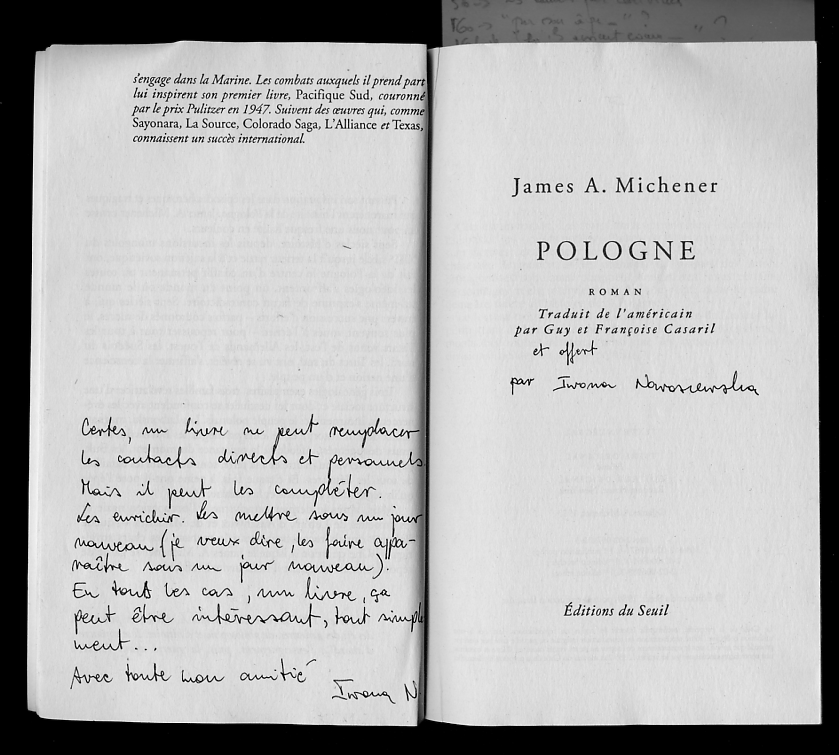 s'engage dans la Marine. Les combats auxquels il prend part
lui inspirent son premier livre, Pacifique Sud, couronné
par le prix Pulitzer en 1947. Suivent des œuvres qui, comme
Sayonara, La Source, Colorado Saga, L'Alliance et Texas,
connaissent un succès international.
Certes, un livre ne peut remplacer
les contacts directs et personnels
Mais il peut les compléter.
Les enrichir. Les mettre sous un jour
nouveau (je veux dire, les faire appa-
raître sous un jour nouveau).
En tout les cas, un livre, ça
peut être intéressant, tout simple
ment...
Avec toute mon amitié
Iwona N
James A. Michener
POLOGNE
ROMAN
Traduit de l'américain
par Guy et Françoise Casaril
et offert
par Iwona Nowosiewska
Éditions du Seuil